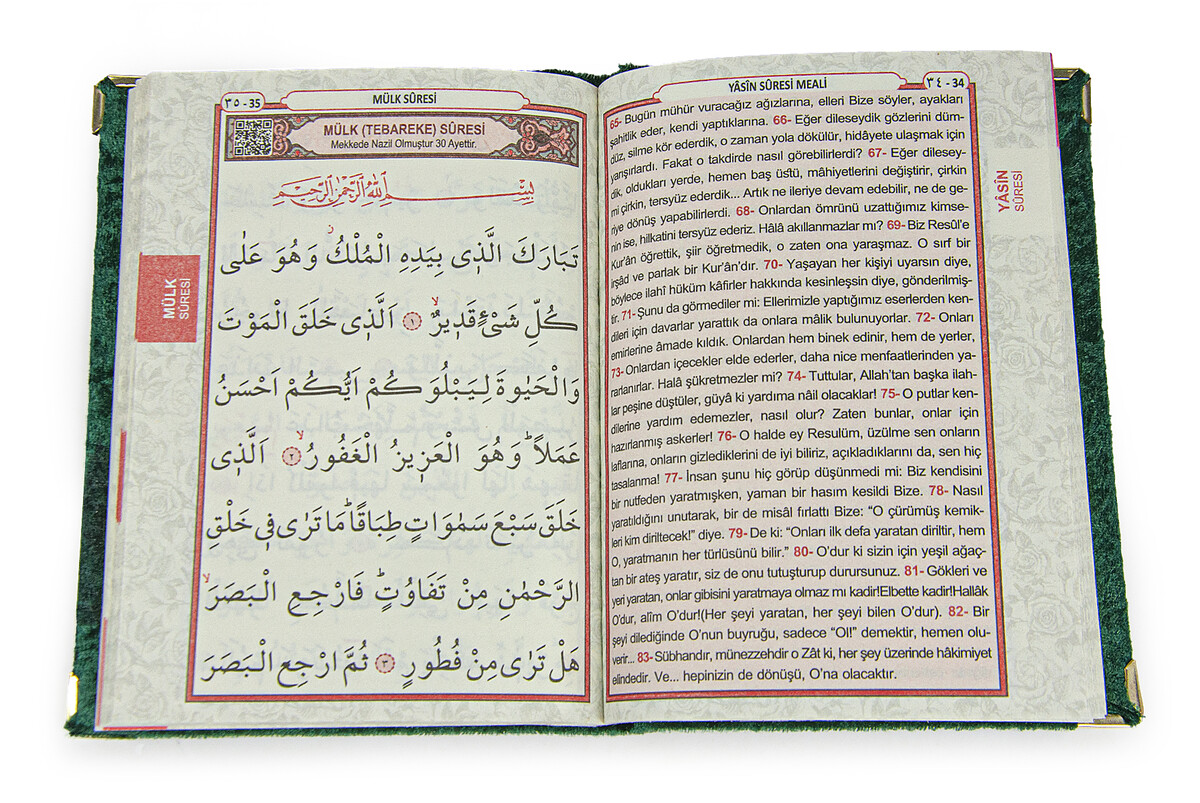 YÂSÎN SÛRESİ MEALİ
٣٤ - 34
65- Bugün mühür vuracağız ağızlarına, elleri Bize söyler, ayakları
şahitlik eder, kendi yaptıklarına. 66- Eğer dileseydik gözlerini düm-
düz, silme kör ederdik, o zaman yola dökülür, hidâyete ulaşmak için
yarışırlardı. Fakat o takdirde nasıl görebilirlerdi? 67- Eğer dilesey-
dik, oldukları yerde, hemen baş üstü, mâhiyetlerini değiştirir, çirkin
mi çirkin, tersyüz ederdik... Artık ne ileriye devam edebilir, ne de ge-
riye dönüş yapabilirlerdi. 68- Onlardan ömrünü uzattığımız kimse-
nin ise, hilkatini tersyüz ederiz. Hâlâ akıllanmazlar mı? 69- Biz Resûl'e
Kur'ân öğrettik, şiir öğretmedik, o zaten ona yaraşmaz. O sırf bir
irşâd ve parlak bir Kur'ân'dır. 70- Yaşayan her kişiyi uyarsın diye,
böylece ilahî hüküm kâfirler hakkında kesinleşsin diye, gönderilmiş-
tir. 71- Şunu da görmediler mi: Ellerimizle yaptığımız eserlerden ken-
dileri için davarlar yarattık da onlara mâlik bulunuyorlar. 72- Onları
emirlerine âmade kıldık. Onlardan hem binek edinir, hem de yerler,
73- Onlardan içecekler elde ederler, daha nice menfaatlerinden ya-
rarlanırlar. Halâ şükretmezler mi? 74- Tuttular, Allah'tan başka ilah-
lar peşine düştüler, güyâ ki yardıma nâil olacaklar! 75- O putlar ken-
dilerine yardım edemezler, nasıl olur? Zaten bunlar, onlar için
hazırlanmış askerler! 76- O halde ey Resulüm, üzülme sen onların
laflarına, onların gizlediklerini de iyi biliriz, açıkladıklarını da, sen hiç
tasalanma! 77- İnsan şunu hiç görüp düşünmedi mi: Biz kendisini
bir nutfeden yaratmışken, yaman bir hasım kesildi Bize. 78- Nasıl
yaratıldığını unutarak, bir de misâl fırlattı Bize: "O çürümüş kemik-
leri kim diriltecek!" diye. 79- De ki: "Onları ilk defa yaratan diriltir, hem
O, yaratmanın her türlüsünü bilir." 80- O'dur ki sizin için yeşil ağaç-
tan bir ateş yaratır, siz de onu tutuşturup durursunuz. 81- Gökleri ve
yeri yaratan, onlar gibisini yaratmaya olmaz mı kadir!Elbette kadir!Hallâk
O'dur, alîm O'dur!(Her şeyi yaratan, her şeyi bilen O'dur). 82- Bir
şeyi dilediğinde O'nun buyruğu, sadece "Ol!" demektir, hemen olu-
verir... 83- Sübhandır, münezzehdir o Zât ki, her şey üzerinde hâkimiyet
elindedir. Ve... hepinizin de dönüşü, O'na olacaktır.
YÂSÎN
SÛRESİ
٣٥ - 35
MÜLK SÛRESİ
MÜLK (TEBAREKE) SÛRESİ
Mekkede Nazil Olmuştur 30 Ayettir.
بِسْمِ اللّٰهِ الرَّحْمٰنِ الرَّحِيمِ
تَبَارَكَ الَّذ۪ى بِيَدِهِ الْمُلْكُۘ وَهُوَ عَلٰى
كُلِّ شَىْءٍ قَد۪يرٌۙ ﴿١﴾ اَلَّذ۪ى خَلَقَ الْمَوْتَ
وَالْحَيٰوةَ لِيَبْلُوَكُمْ اَيُّكُمْ اَحْسَنُ
عَمَلًاۜ وَهُوَ الْعَز۪يزُ الْغَفُورُۙ ﴿٢﴾ اَلَّذ۪ى
خَلَقَ سَبْعَ سَمٰوَاتٍ طِبَاقًاۜ مَا تَرٰى ف۪ى خَلْقِ
الرَّحْمٰنِ مِنْ تَفَاوُتٍۜ فَارْجِعِ الْبَصَرَۙ
هَلْ تَرٰى مِنْ فُطُورٍ ﴿٣﴾ ثُمَّ ارْجِعِ الْبَصَرَ
MÜLK
SÛRESİ